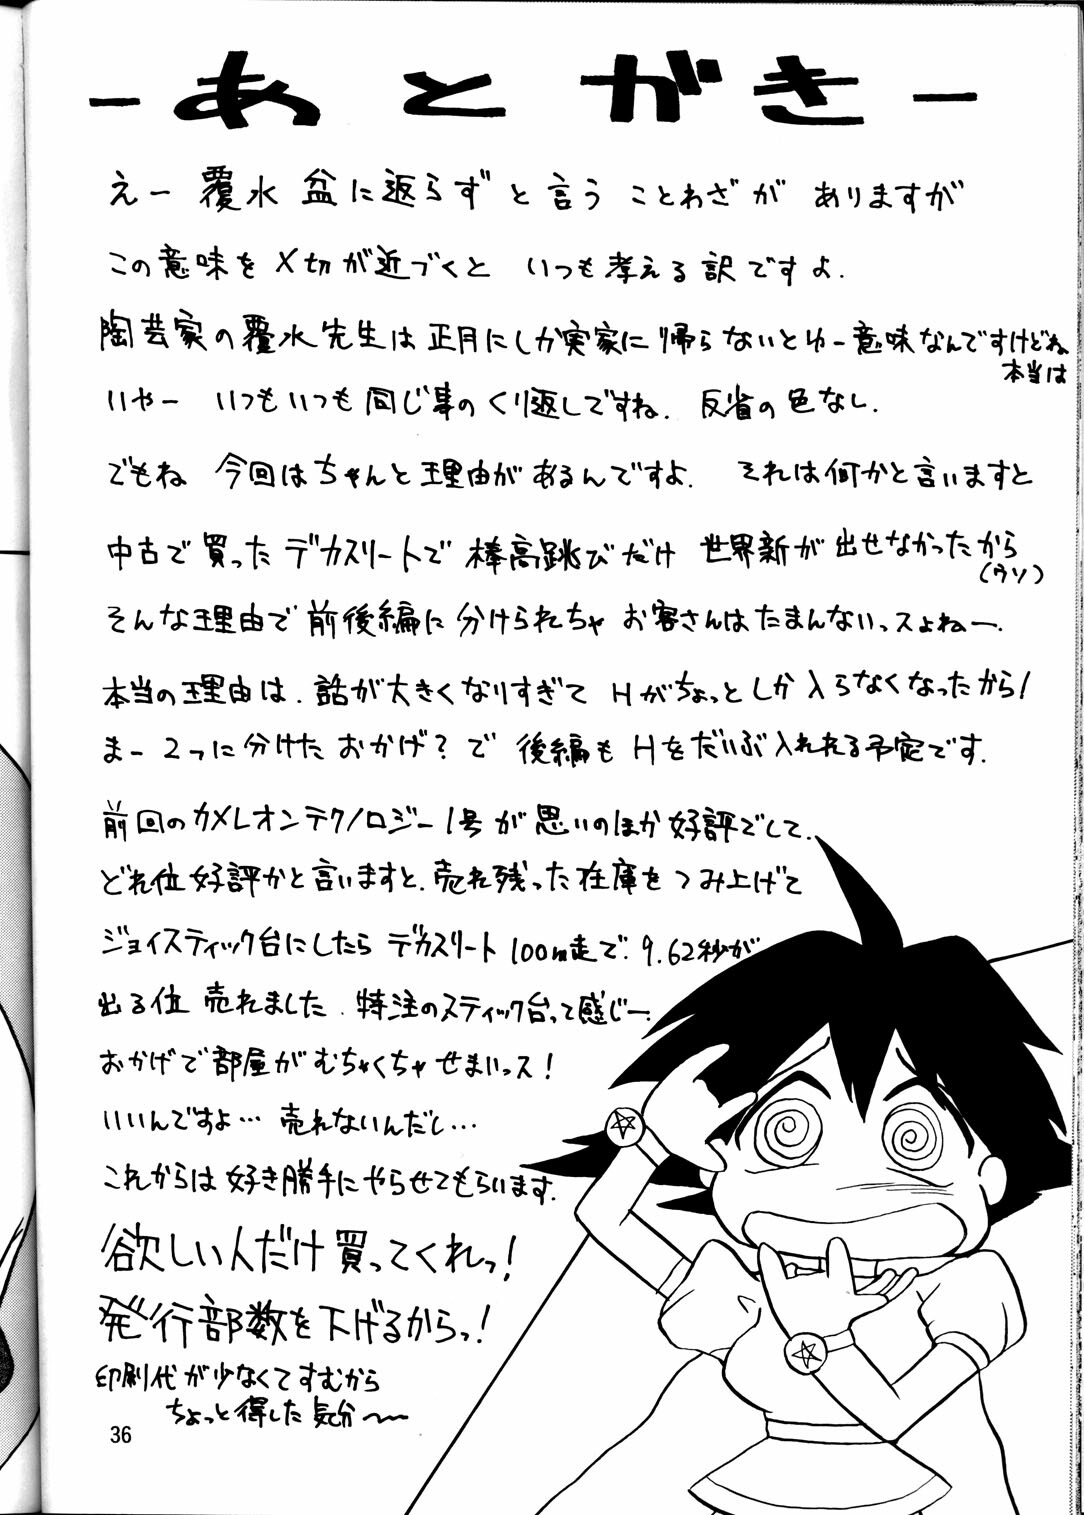 －あとがき－
えー 覆水 盆に返らず と言う ことわざが ありますが
この意味を〆切が近づくと いつも考える訳ですよ.
陶芸家の覆水先生は正月にしか実家に帰らないとゆー意味なんですけどね
本当は
いやー いつもいつも同じ事のくり返しですね. 反省の色なし.
でもね 今回はちゃんと理由があるんですよ. それは何かと言いますと
中古で買ったデカスリートで棒高跳びだけ 世界新が出せなかったから
(ウソ)
そんな理由で前後編に分けられちゃ お客さんはたまんないっスよねー.
本当の理由は. 話が大きくなりすぎて Hがちょっとしか入らなくなったから!
まー 2つに分けた おかげ?で 後編もHをだいぶ入れれる予定です.
前回のカメレオンテクノロジー1号が思いのほか好評でして.
どれ位好評かと言いますと. 売れ残った在庫をつみ上げて
ジョイスティック台にしたら デカスリート100m走で. 9.62秒が
出る位 売れました. 特注のスティック台って感じー.
おかげで部屋がむちゃくちゃせまいっス!
いいんですよ… 売れないんだし…
これからは好き勝手にやらせてもらいます.
欲しい人だけ買ってくれっ!
発行部数を下げるからっ!
印刷代が少なくてすむから
ちょっと得した気分〜
36